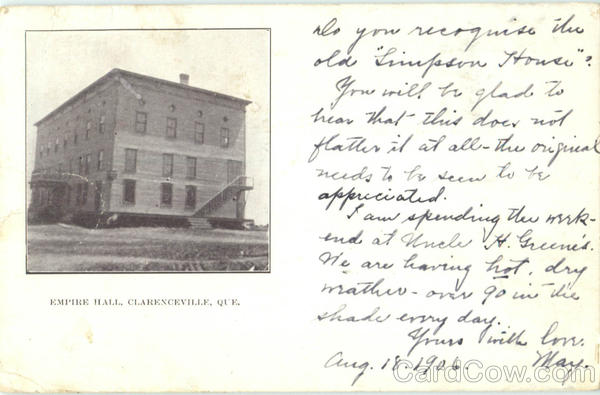 Do you recognise the
old "Simpson House"?
You will be glad to
hear that this does not
flatter it at all - the original
needs to be seen to be
appreciated.
I am spending the week-
end at Uncle H. Greene's.
We are having hot, dry
weather - over 90 in the
shade every day.
Yours with love.
May.
Aug. 18. 1906.
EMPIRE HALL, CLARENCEVILLE, QUE.
CardCow.com